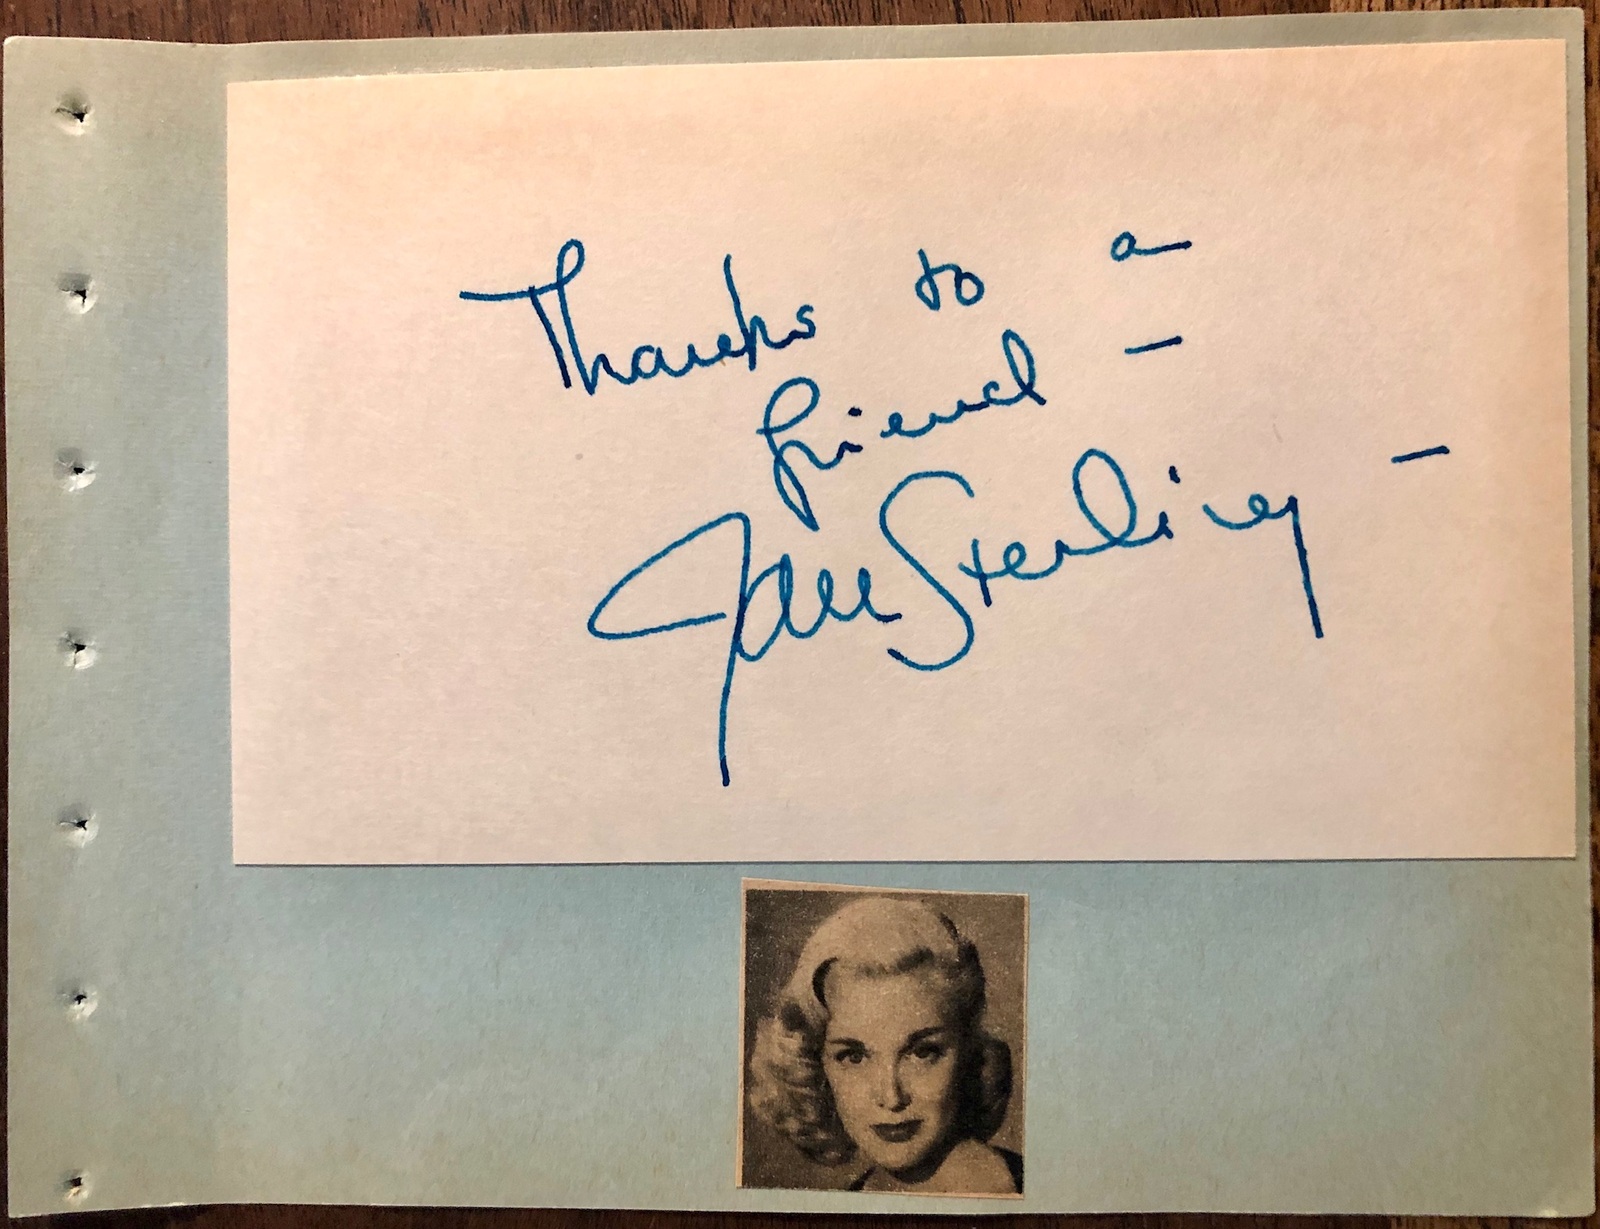 Thanks to a
friend -
Jan Sterling -